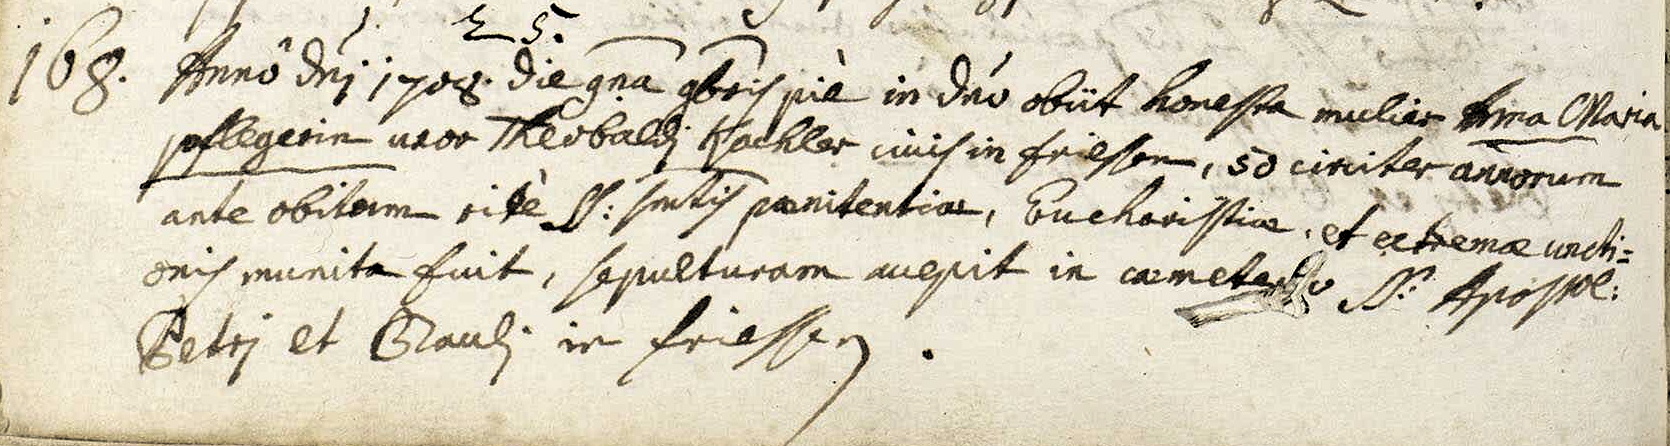 168. Anno dnj 1708. die 9na 9bris pie in dno obiit honesta mulier Anna Maria
pflegerin uxor Theobaldj Kachler civis in friessen, 50 circiter annorum
ante obitum rite SS: smtis pænitentiæ, Eucharistiæ, et extremæ uncti=
onis munita fuit, sepulturam accepit in cæmeterio SS: Apostol:
Petrj et Paulj in friessen.